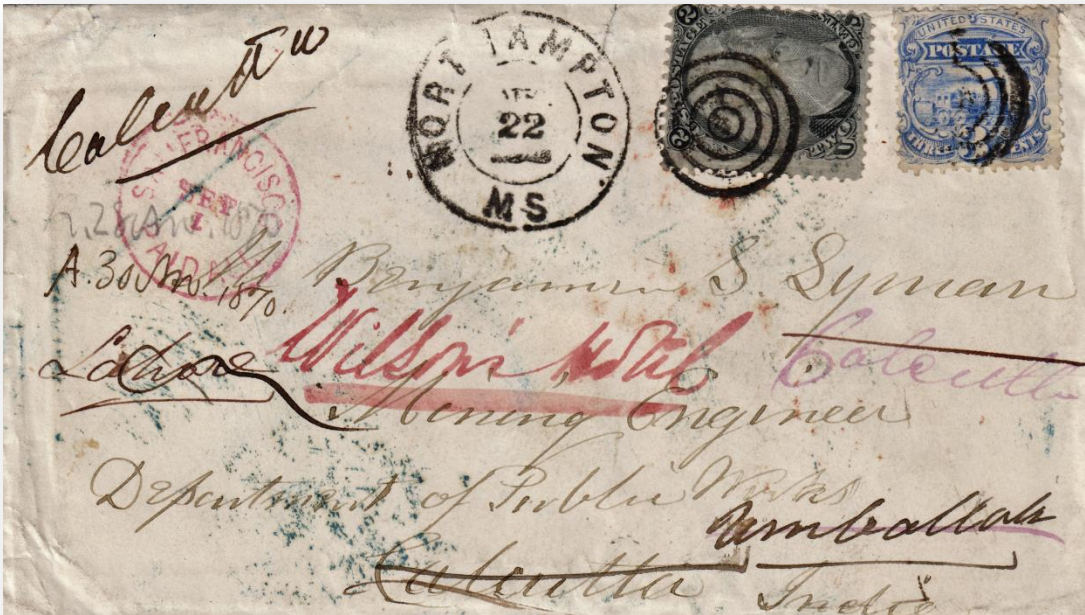 Calcutta
NORTHAMPTON
22
MS
UNITED STATES
POSTAGE
THREE 3 CENTS
SAN FRANCISCO
SEP
1
PAID
1870
A. 30 1870.
Benjamin S. Lyman
Lahore
Wilson's Hotel
Calcutta
Mining Engineer
Department of Public Works
Umballah
Calcutta
India